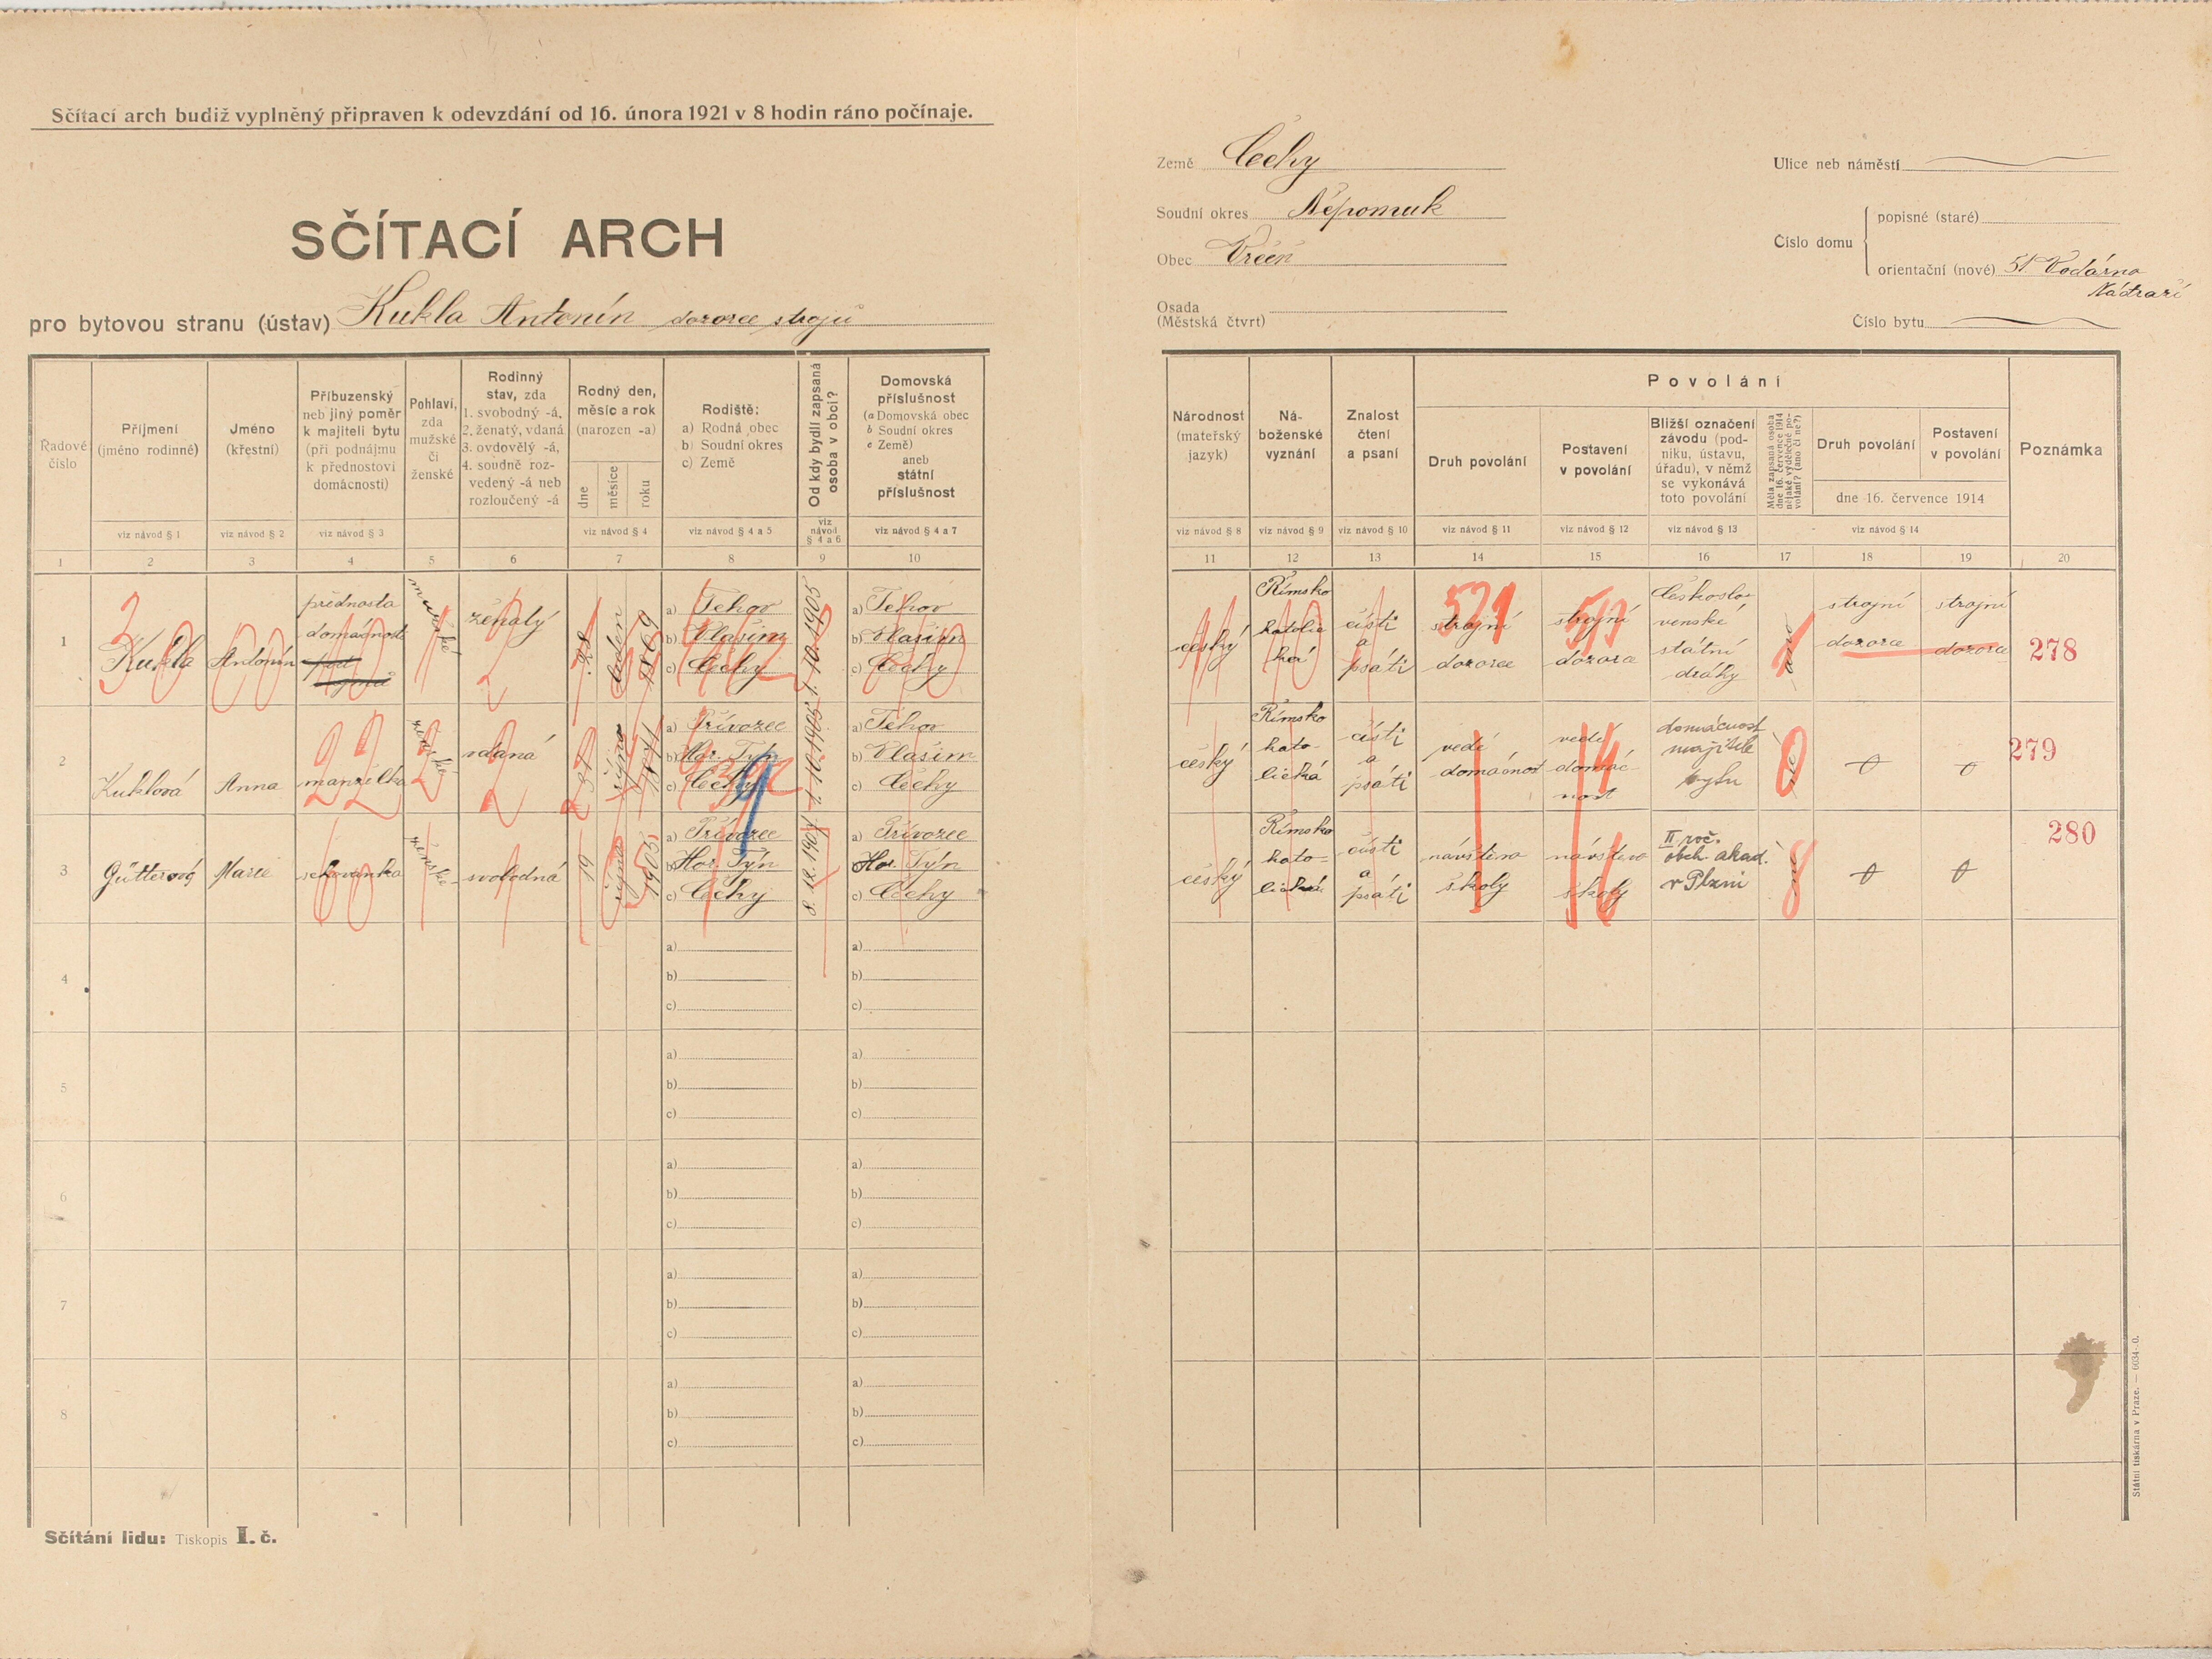 Sčítací arch budiž vyplněný připraven k odevzdání od 16. února 1921 v 8 hodin ráno počínaje.
SČÍTACÍ ARCH
pro bytovou stranu (ústav) Kukla Antonín dozorce strojů
Země Čechy
Soudní okres Nepomuk
Obec Vrčeň
Osada
(Městská čtvrt)
Ulice neb náměstí
Číslo domu
popisné (staré)
orientační (nové) 51 Vodárna
Nádraží
Číslo bytu
Řadové číslo
Příjmení (jméno rodinné)
Jméno (křestní)
Příbuzenský neb jiný poměr k majiteli bytu (při podnájmu k přednostovi domácnosti)
Pohlaví, zda mužské či ženské
Rodinný stav, zda 1. svobodný -á, 2. ženatý, vdaná 3. ovdovělý -á, 4. soudně rozvedený -á neb rozloučený -á
Rodný den, měsíc a rok (narozen -a)
dne měsíce roku
Rodiště: a) Rodná obec b) Soudní okres c) Země
Od kdy bydlí zapsaná osoba v obci?
Domovská příslušnost (a Domovská obec b Soudní okres c Země) aneb státní příslušnost
Národnost (mateřský jazyk)
Náboženské vyznání
Znalost čtení a psaní
Povolání
Druh povolání
Postavení v povolání
Bližší označení závodu (podniku, ústavu, úřadu), v němž se vykonává toto povolání
Měla zapsaná osoba dne 16. července 1914 nějaké výdělečné povolání? (ano či ne?)
Druh povolání
Postavení v povolání
dne 16. července 1914
Poznámka
viz návod § 1 viz návod § 2 viz návod § 3 viz návod § 4 viz návod § 4 a 5 viz návod § 4 a 6 viz návod § 4 a 7
viz návod § 8 viz návod § 9 viz návod § 10 viz návod § 11 viz návod § 12 viz návod § 13 viz návod § 14
1 2 3 4 5 6 7 8 9 10
11 12 13 14 15 16 17 18 19 20
1 Kukla Antonín přednosta domácnosti mužské ženatý 28 leden 1869
a) Tehov
b) Vlašim
c) Čechy
1. 10. 1905
a) Tehov
b) Vlašim
c) Čechy
český Římsko katolická čísti a psáti strojní dozorce strojní dozorce Československé státní dráhy ano strojní dozorce strojní dozorce 278
2 Kuklová Anna manželka ženské vdaná října 1871
a) Přívozec
b) Hor. Týn
c) Čechy
1. 10. 1905
a) Tehov
b) Vlašim
c) Čechy
český Římsko katolická čísti a psáti vede domácnost vede domácnost domácnost majitele bytu 0 0 279
3 Gütterová Marie schovanka ženské svobodná 19 října 1905
a) Přívozec
b) Hor. Týn
c) Čechy
a) Přívozec
b) Hor. Týn
c) Čechy
český Římsko katolická čísti a psáti návštěva školy návštěva školy II roč. obch. akad. v Plzni 0 0 280
4
a) a)
b) b)
c) c)
5
a) a)
b) b)
c) c)
6
a) a)
b) b)
c) c)
7
a) a)
b) b)
c) c)
8
a) a)
b) b)
c) c)
Sčítání lidu: Tiskopis I. č.
Státní tiskárna v Praze. — 6034-0.